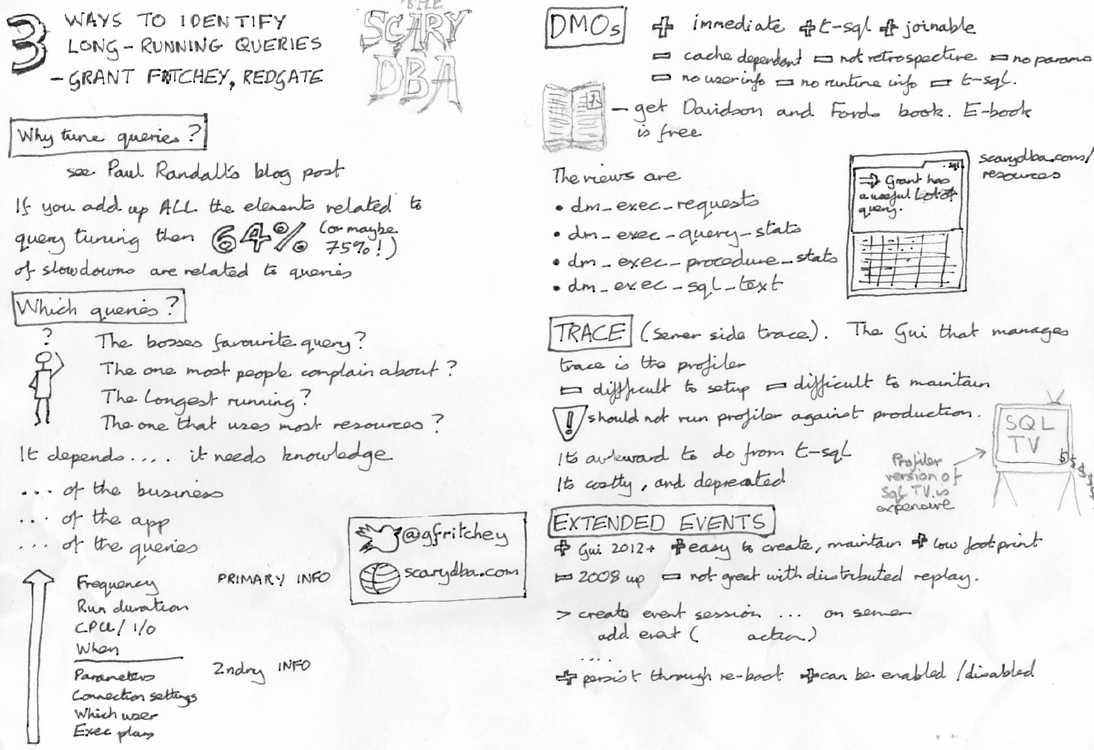 3 WAYS TO IDENTIFY
LONG-RUNNING QUERIES
- GRANT FRITCHEY, REDGATE
THE
SCARY
DBA
Why tune queries?
see Paul Randall's blog post
If you add up ALL the elements related to
query tuning then 64% (or maybe 75%!)
of slowdowns are related to queries
Which queries?
?
The bosses favourite query?
The one most people complain about?
The Longest running?
The one that uses most resources?
It depends.... it needs knowledge
... of the business
... of the app
... of the queries
@gfritchey
scarydba.com
Frequency
Run duration
CPU / I/O
When
PRIMARY INFO
Parameters
Connection settings
Which user
Exec plans
2ndry INFO
DMOs + immediate + t-sql + joinable
- cache dependant - not retrospective - no params
- no user info - no runtime info - t-sql.
- get Davidson and Fords book. E-book
is free
The views are
• dm_exec_requests
• dm_exec_query_stats
• dm_exec_procedure_stats
• dm_exec_sql_text
.sql
⇒ Grant has
a useful
query.
scarydba.com/
resources
TRACE (server side trace). The Gui that manages
trace is the profiler
- diffficult to setup - difficult to maintain
! should not run profiler against production.
Its awkward to do from t-sql
Its costly, and deprecated
SQL
TV
Profiler
version of
Sql TV is
expensive
$ $ $ $
EXTENDED EVENTS
+ Gui 2012+ + easy to create, maintain + low footprint
- 2008 up - not great with distributed replay.
> create event session ... on server
add event ( action)
....
+ persist through re-boot + can be enabled/disabled